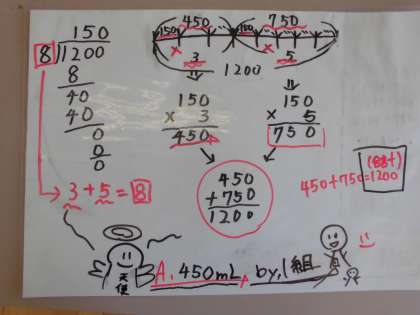 150
8)1200
8
40
40
0
0
0
3+5=8
450 750
150 150
× ×
3 5
1200
150
× 3
450
150
× 5
750
450
+750
1200
450+750=1200
天使
A. 450mL
by.1組